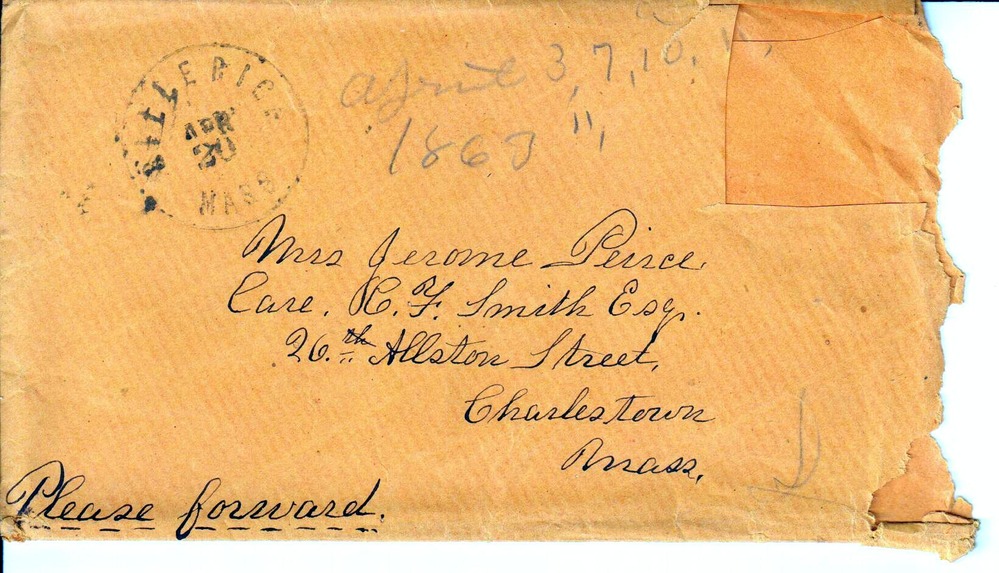 BILLERICA
APR
20
MASS
April 3, 7, 10, 11,
1863 11,
Mrs Jerome Peirce
Care, H. F. Smith Esq.
26.th Allston Street,
Charlestown
Mass.
Please forward.